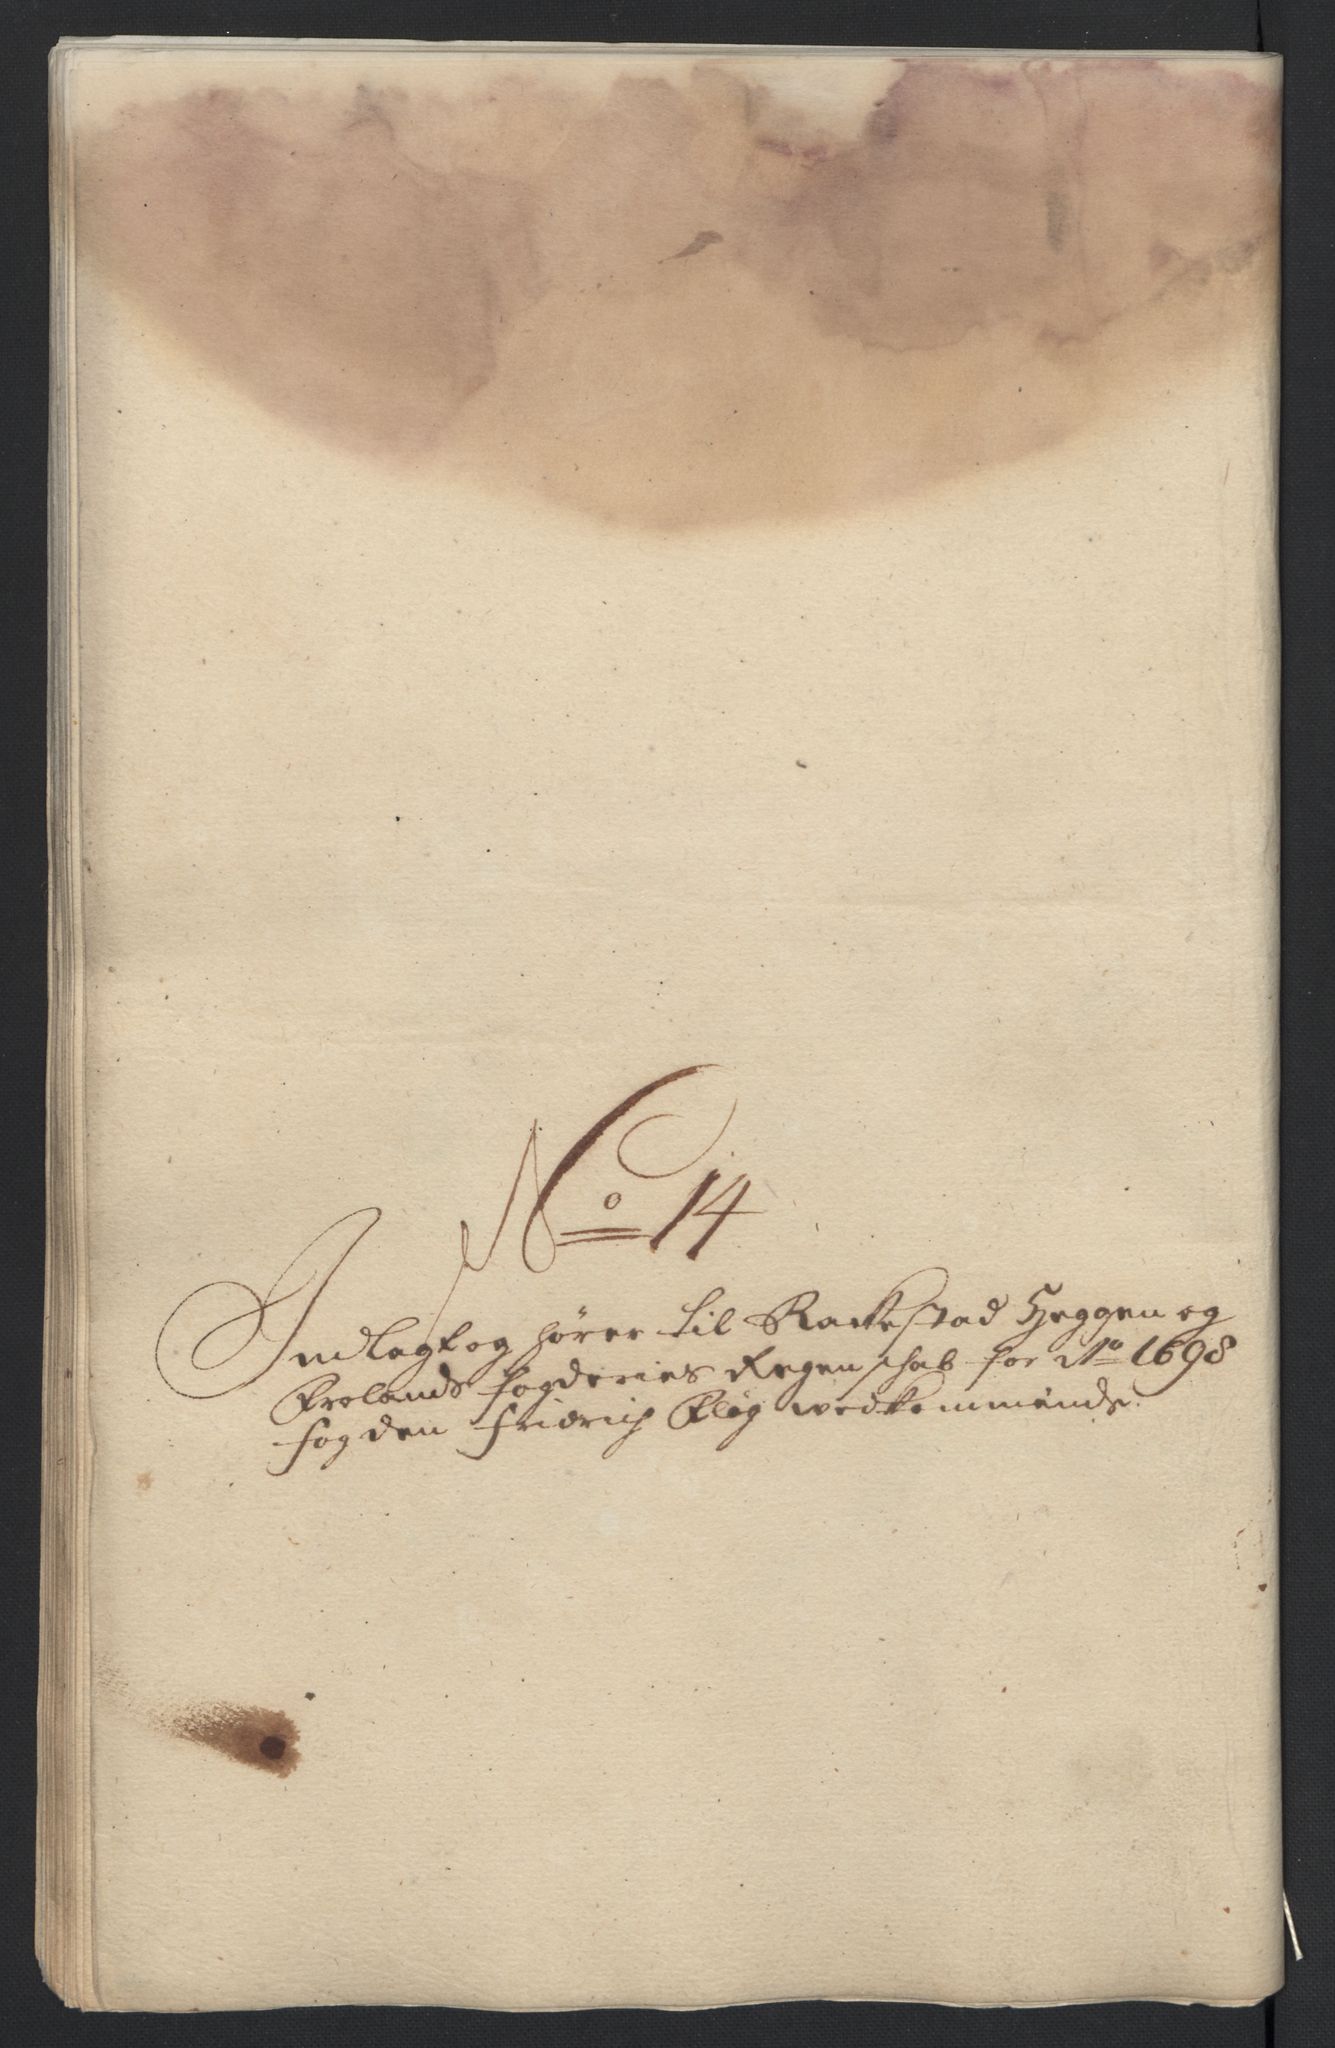 No 14
Indlagt og hører til Rackestad Heggen og
Frolands fogderies Regenschab for Ao 1698
fogden Fridrich Pløg wedkommende.